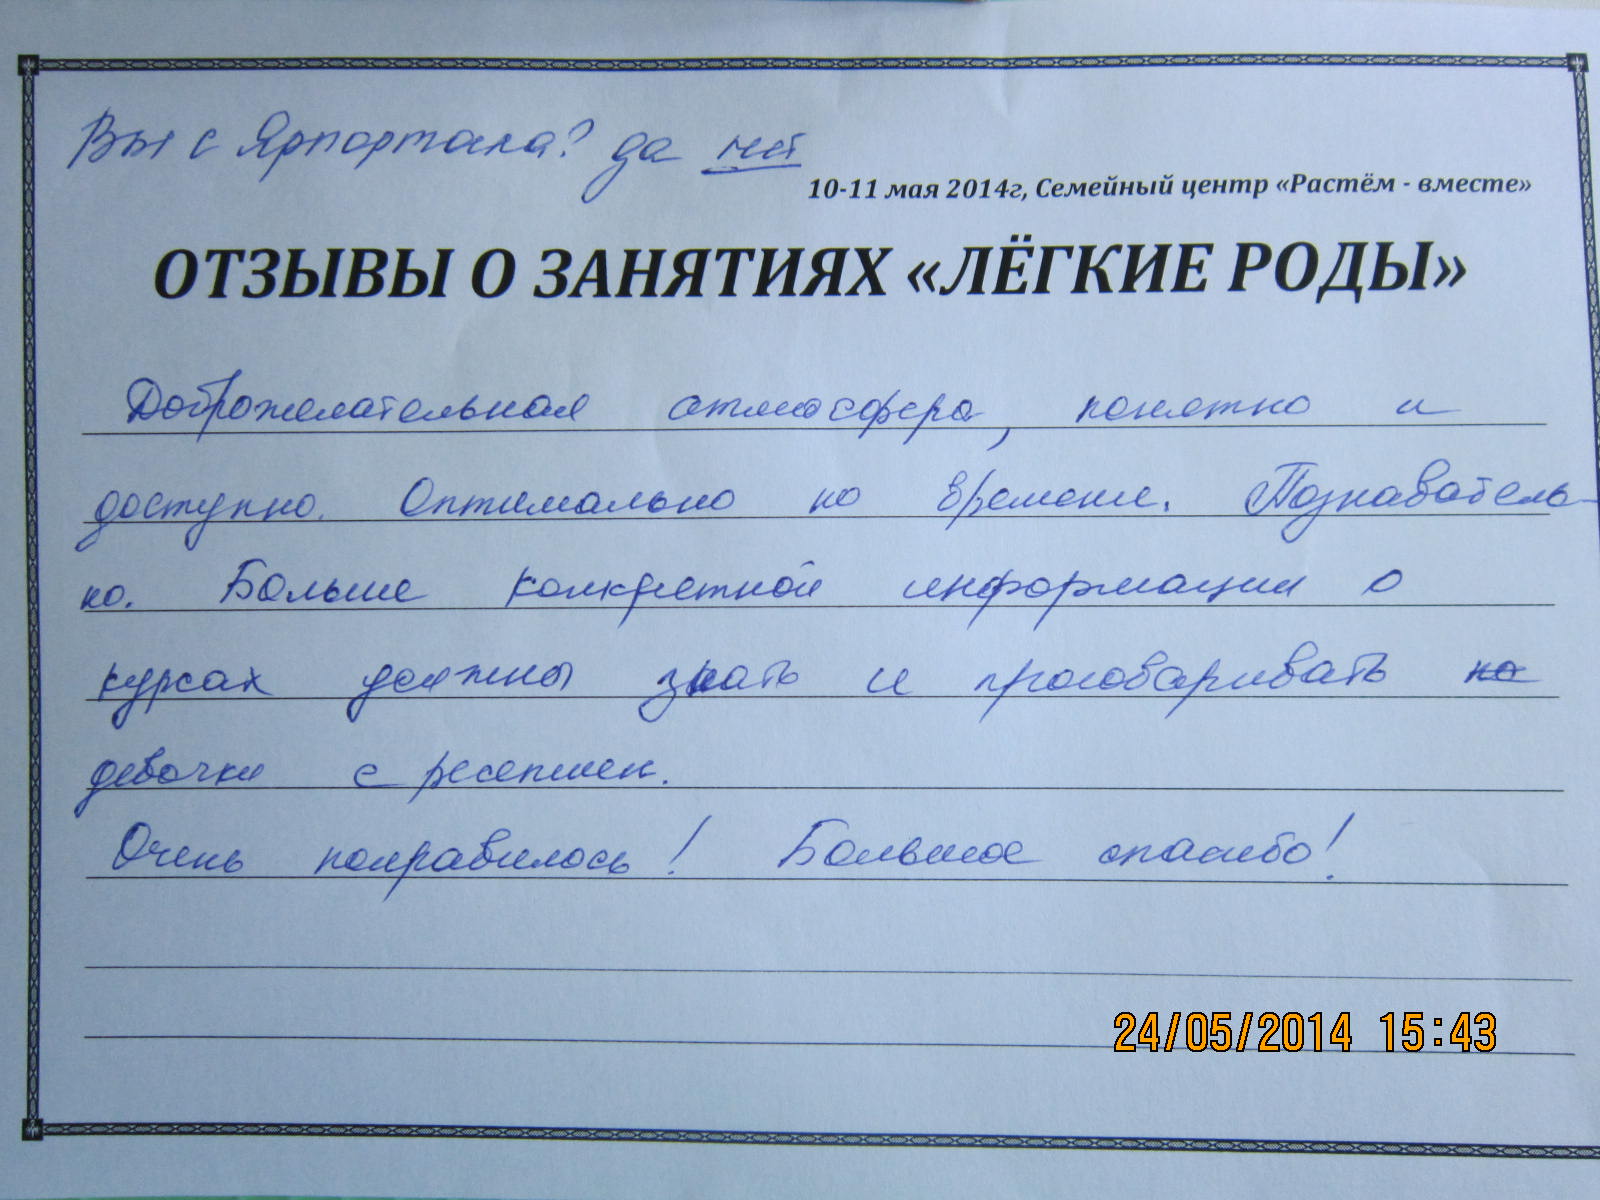 Вы с Ярпортала? да нет
10-11 мая 2014г, Семейный центр «Растём - вместе»
ОТЗЫВЫ О ЗАНЯТИЯХ «ЛЁГКИЕ РОДЫ»
Доброжелательная атмосфера, понятно и
доступно. Оптимально по времени. Познаватель-
но. Больше конкретной информации о
курсах должны знать и проговаривать на
девочки с ресепшен.
Очень понравилось! Большое спасибо!
24/05/2014 15:43